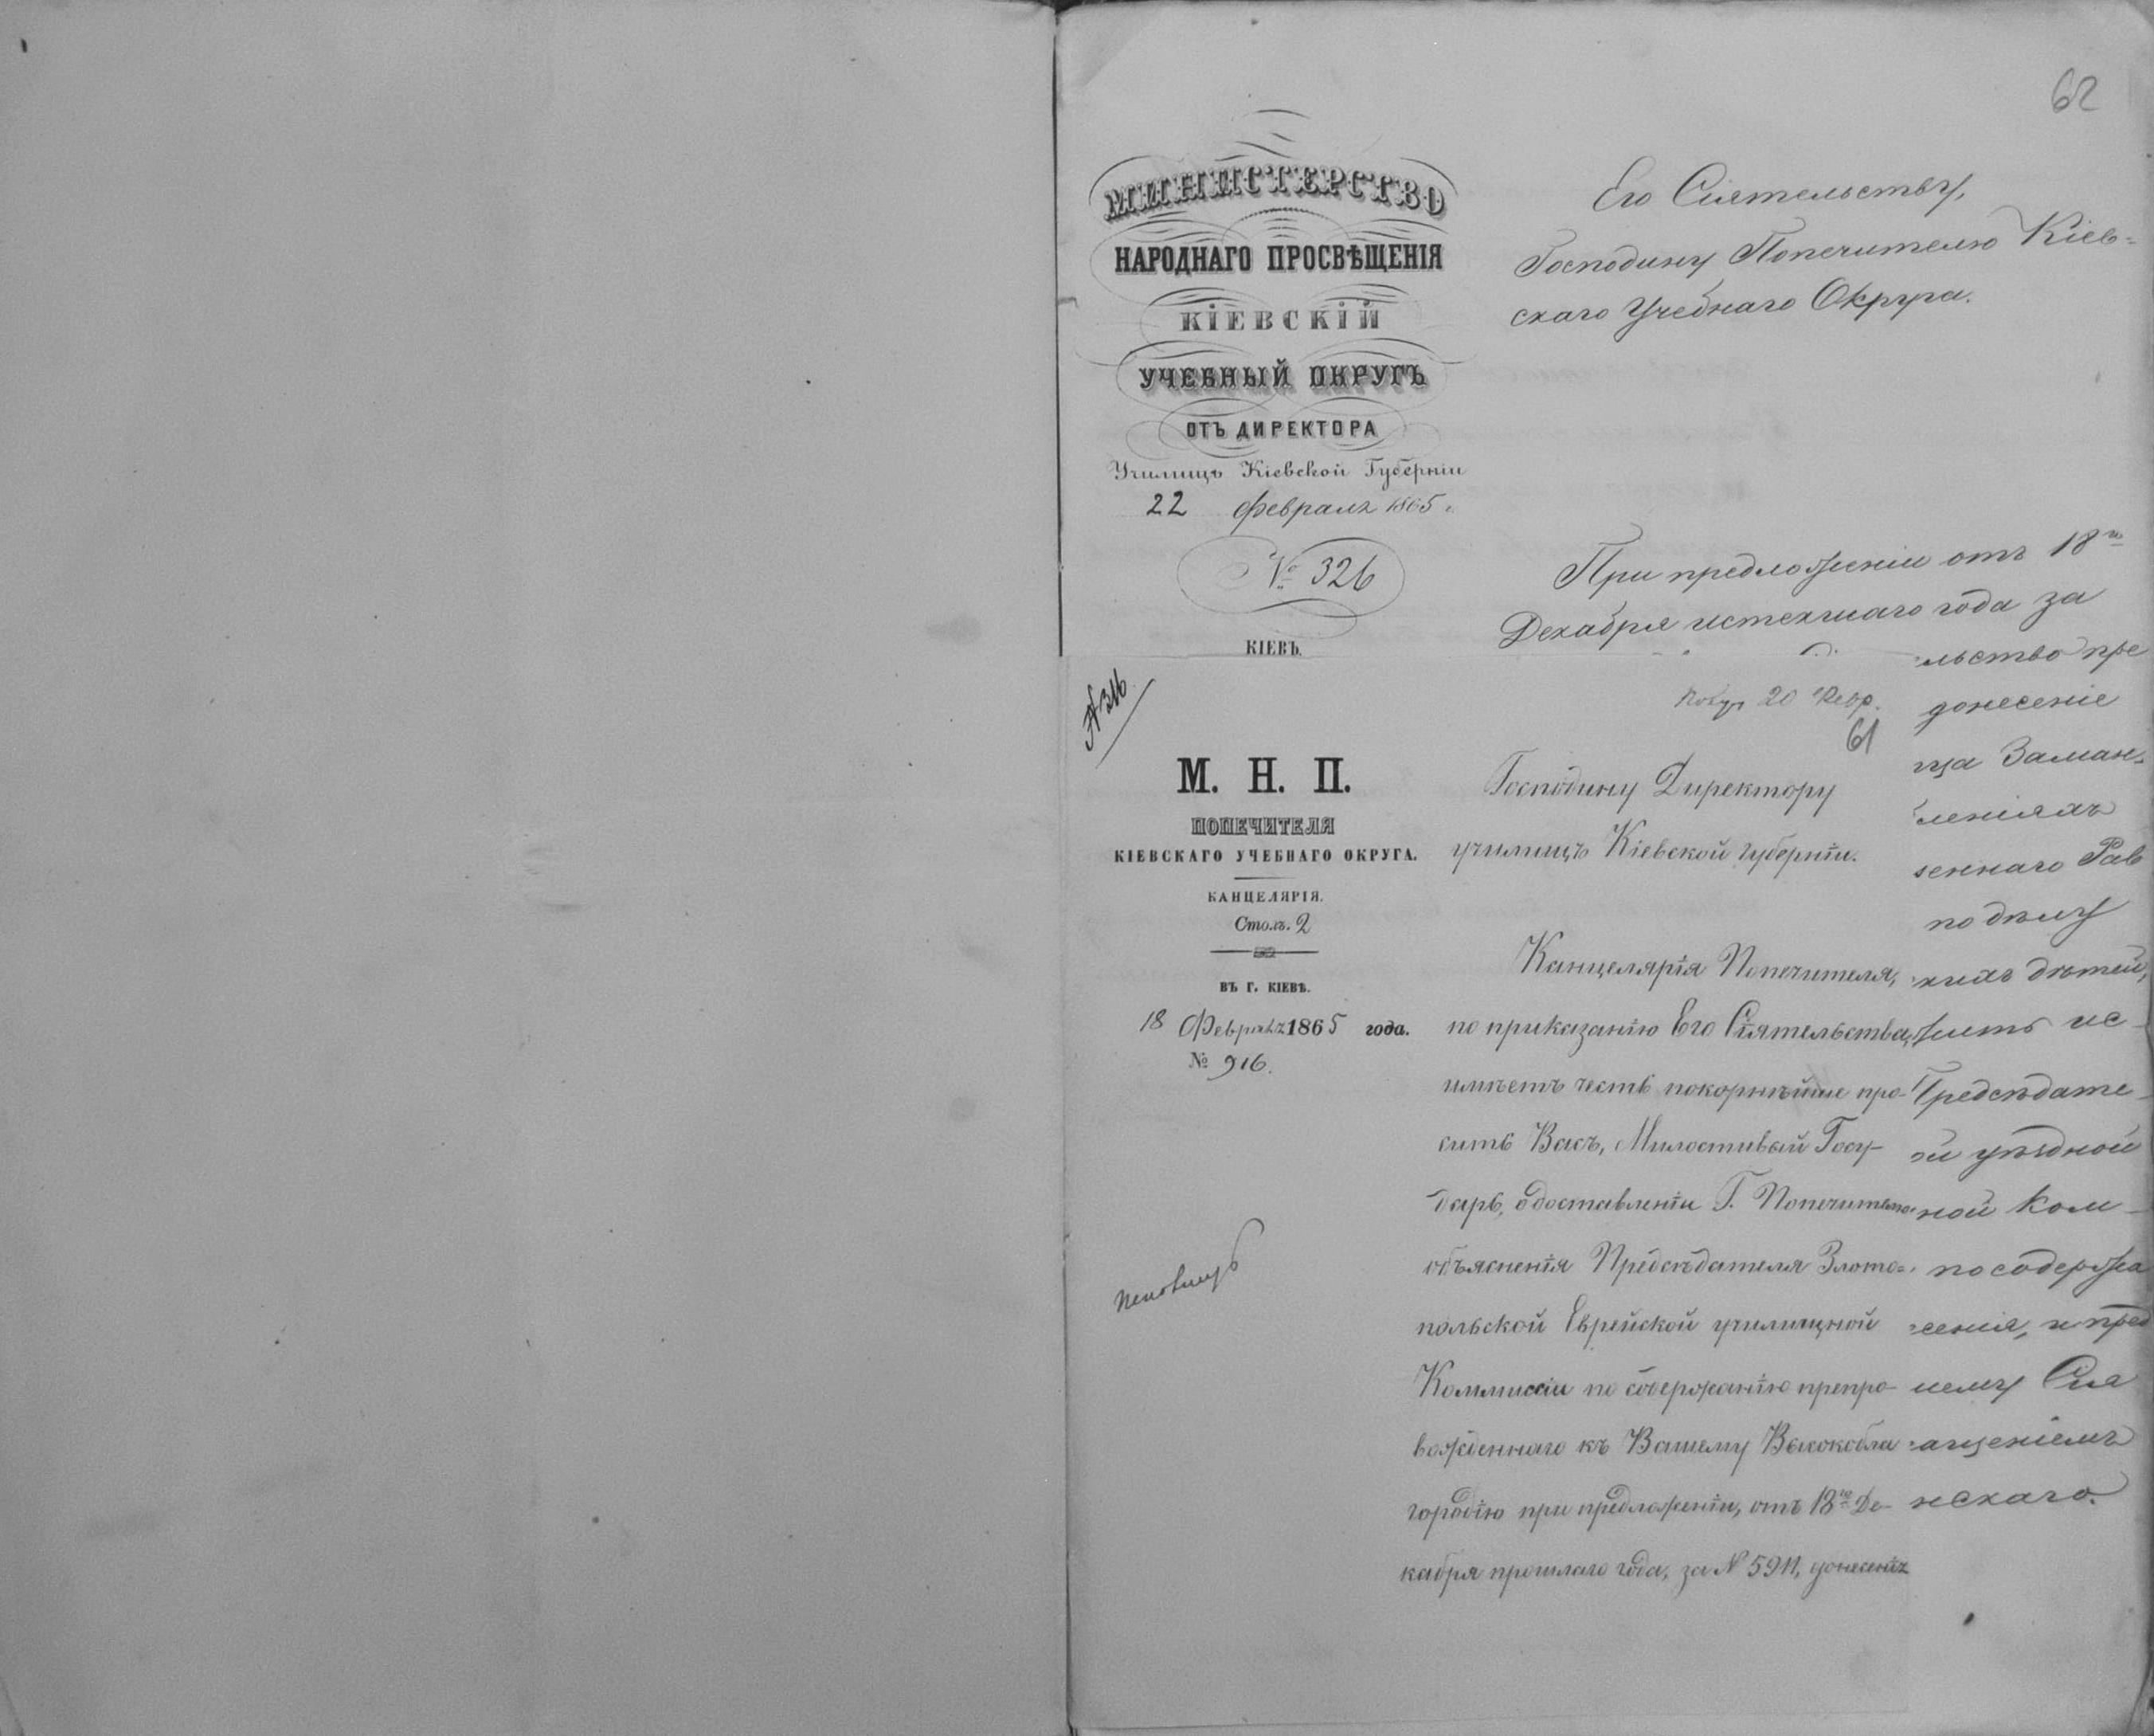 62
МИНИСТЕРСТВО
НАРОДНАГО ПРОСВѢЩЕНІЯ
КІЕВСКІЙ
УЧЕБНЫЙ ОКРУГЪ
ОТЪ ДИРЕКТОРА
Училищъ Кіевской Губерніи
22 Февраля 1865 г.
№ 326
КІЕВЪ.
Его Сіятельству,
Господину Попечителю Кіев-
скаго Учебнаго Округа.
При предложеніи отъ 18го
Декабря истекшаго года за
льство пре
донесеніе
ца Заман-
леніяхъ
зеннаго Рав
по дѣлу
кихъ дѣтей,
жить ис-
Предсѣдате-
ой уѣздной
ной Ком-
по содержа
сенія, и пред
шему Сія
ащеніемъ
нскаго.
№ 316
М. Н. П.
ПОПЕЧИТЕЛЯ
КІЕВСКАГО УЧЕБНАГО ОКРУГА.
КАНЦЕЛЯРІЯ.
Столъ. 2
ВЪ Г. КІЕВѢ.
18 Февраля 1865 года.
№ 916.
20 Февр.
61
Господину Директору
училищъ Кіевской губерніи.
Канцелярія Попечителя,
по приказанію Его Сіятельства,
имѣетъ честь покорнѣйше про-
сить Васъ, Милостивый Госу-
дарь, о доставленіи Г. Попечителю
объясненія Предсѣдателя Злото-
польской Еврейской училищной
Коммиссіи по содержанію препро-
вожденнаго къ Вашему Высокобла
городію при предложеніи, отъ 18го Де-
кабря прошлаго года, за № 5911, донесенія